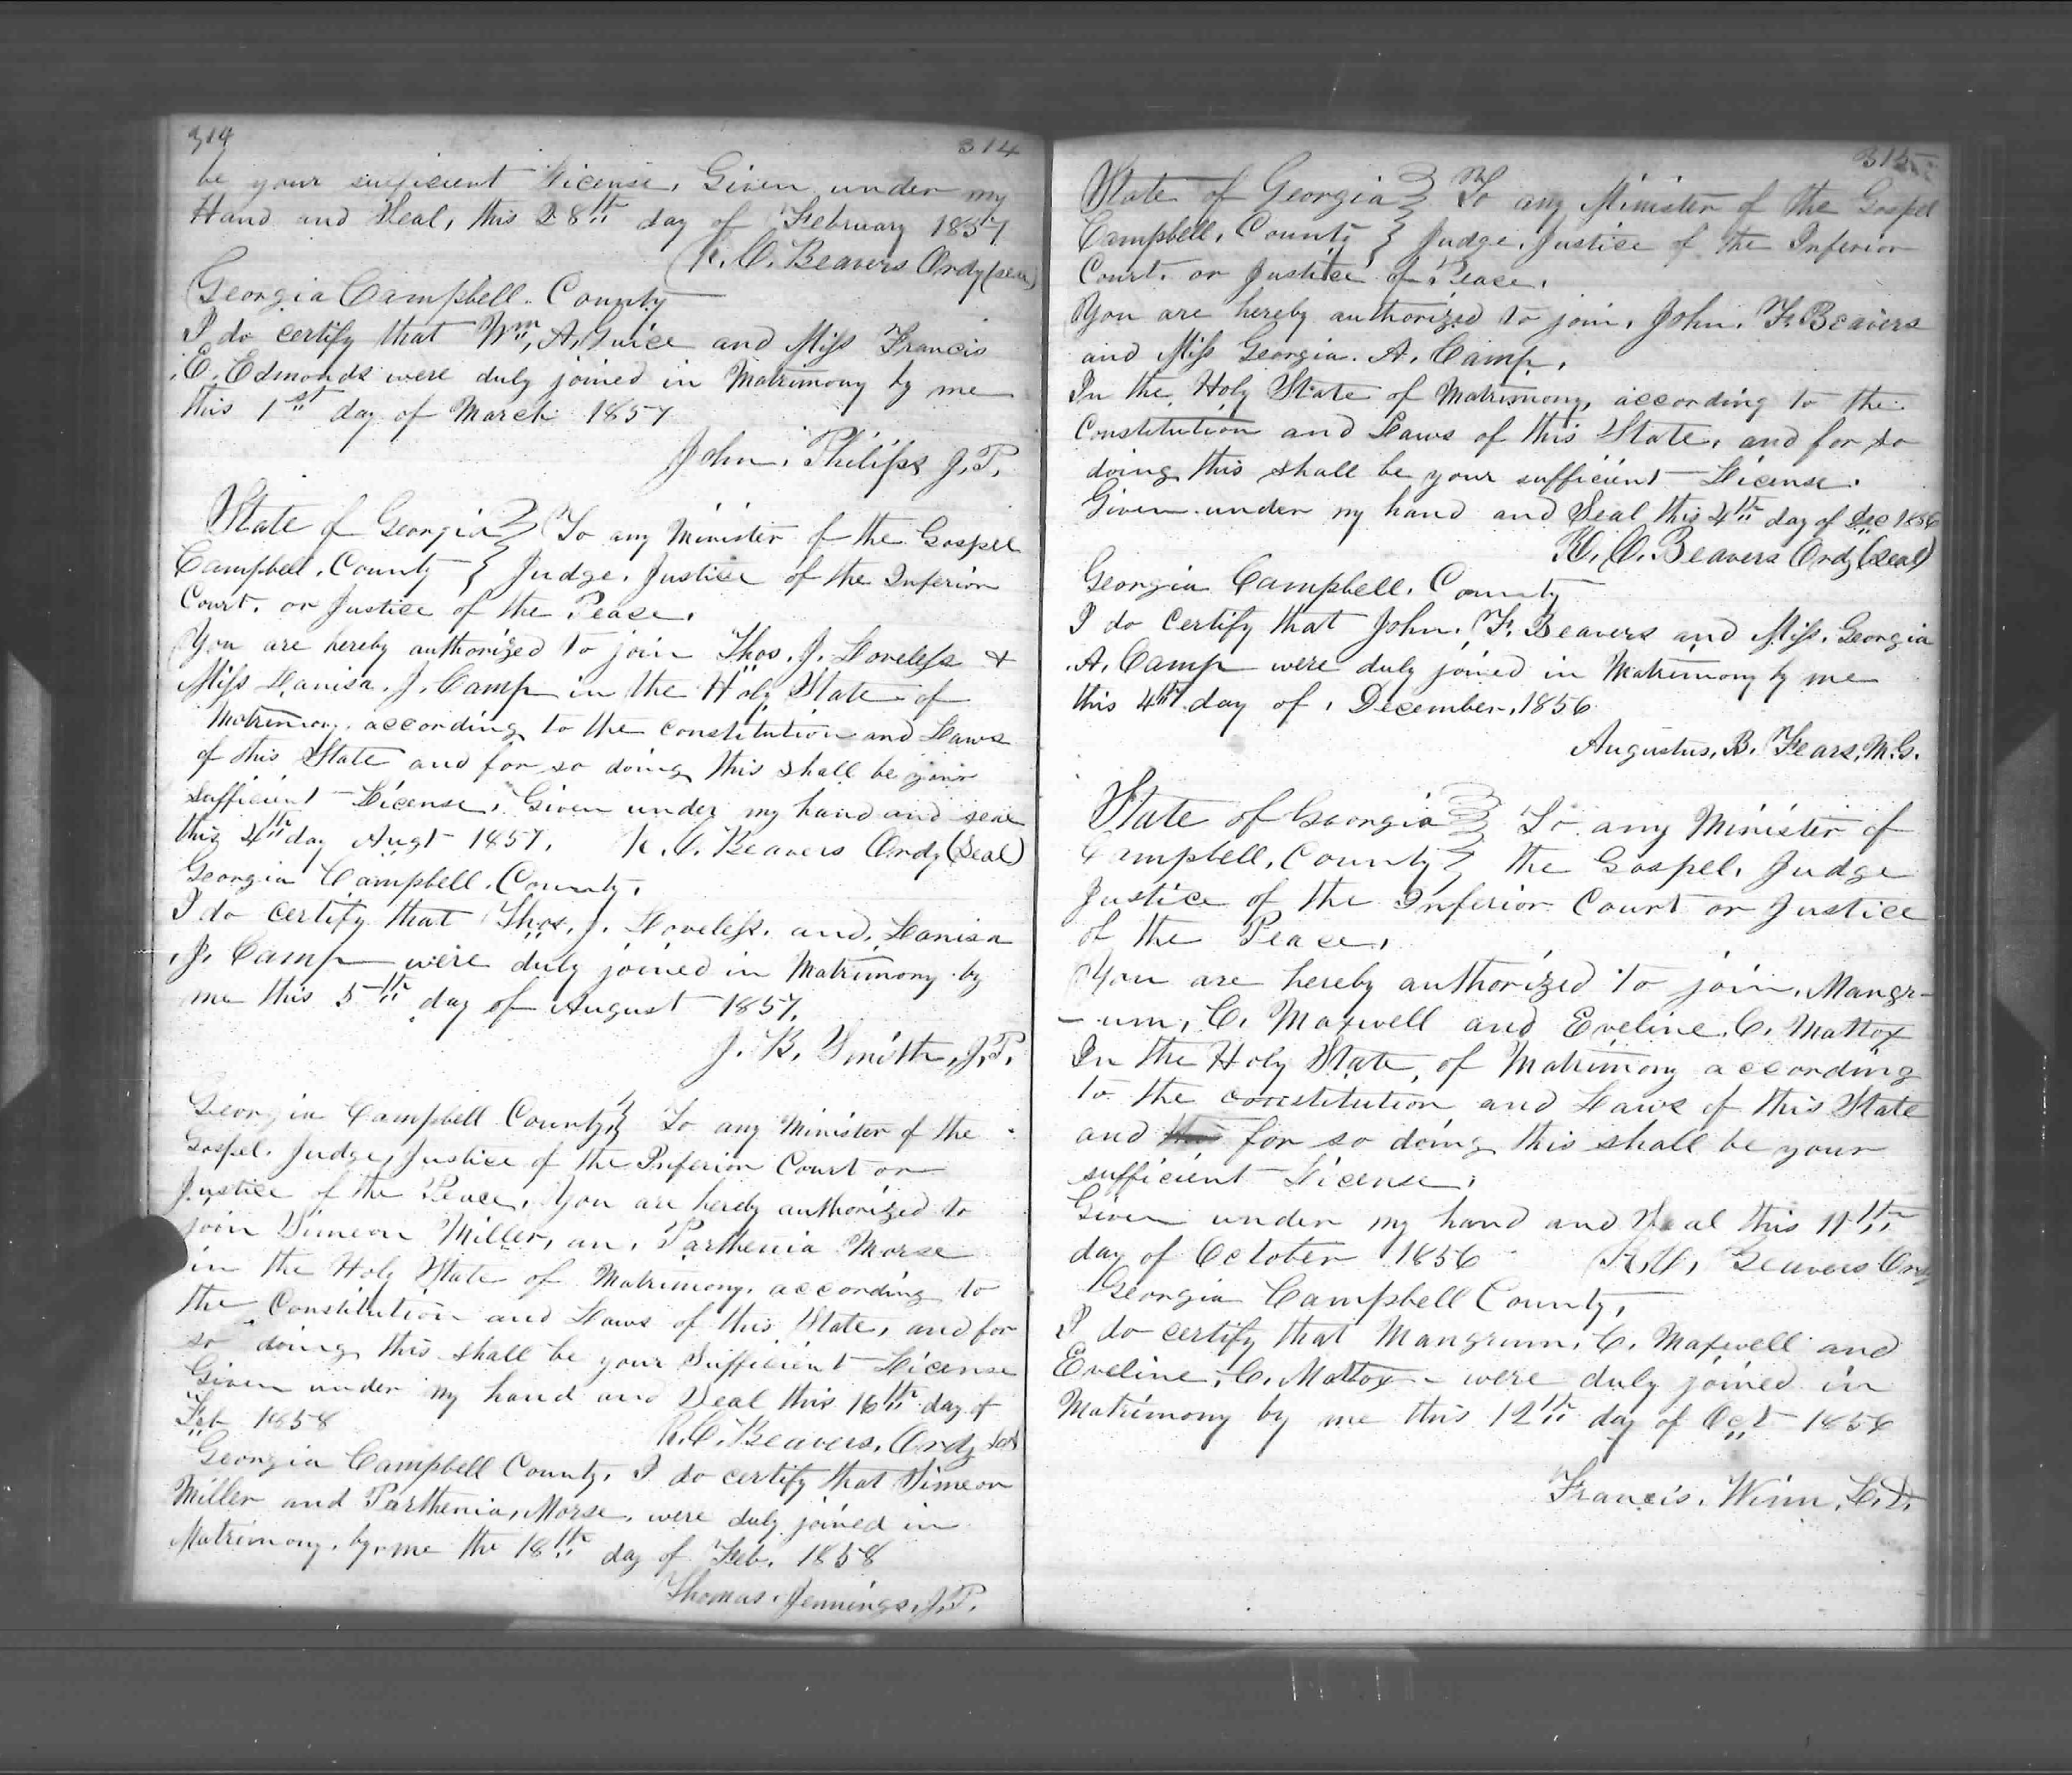 314 314
be your sufficient License, Given under my
Hand and Seal, this 28th day of February 1857
R. C. Beavers Ordy (seal)
Georgia Campbell County
I do certify that Wm, A, Guice and Miss Francis
E. Edmonds were duly joined in Matrimony by me
this 1st day of March 1857
John, Philips J.P.
State of Georgia } To any Minister of the Gospel
Campbell, County } Judge, Justice of the Inferior
Court, or Justice of the Peace,
You are hereby authorized to join Thos. J. Loveless &
Miss Lanisa, J, Camp in the Holy State of
Matrimony, according to the constitution and Laws
of this State and for so doing this shall be your
sufficient License, Given under my hand and seal
this 4th day Augt 1857, R. C. Beavers Ordy (Seal)
Georgia Campbell, County,
I do certify that Thos, J. Loveless, and, Lanisa
J, Camp were duly joined in Matrimony by
me this 5th day of August 1857,
J. B. Smith, J.P.
Georgia Campbell County } To any Minister of the
Gospel, Judge, Justice of the Inferior Court or
Justice of the Peace, You are hereby authorized to
join Simeon Miller, an, Parthenia Morse
in the Holy State of Matrimony, according to
the Constitution and Laws of this State, and for
so doing this shall be your Sufficient License
Given under my hand and Seal this 16th day of
Feb 1858 R. C. Beavers, Ordy
Georgia Campbell County, I do certify that Simeon
Miller and Parthenia, Morse, were duly joined in
Matrimony, by, me the 18th day of Feb, 1858
Thomas, Jennings, J.P.
315
State of Georgia } To any Minister of the Gospel
Campbell, County } Judge, Justice of the Inferior
Court, or Justice of Peace,
You are hereby authorized to join, John, F. Beavers
and Miss Georgia. A. Camp,
In the Holy State of Matrimony, according to the
Constitution and Laws of this State, and for so
doing this shall be your sufficient License.
Given under my hand and Seal this 4th day of Dec 1856
R. C. Beavers Ordy (Seal)
Georgia Campbell, County
I do certify that John, F. Beavers and Miss, Georgia
A, Camp were duly joined in Matrimony by me
this 4th day of, December, 1856
Augustus, B. Fears, M.G.
State of Georgia } To any Minister of
Campbell, County } the Gospel, Judge
Justice of the Inferior Court or Justice
of the Peace,
You are hereby authorized to join, Mangr-
-um, C, Maxwell and Eveline, C, Mattox
In the Holy State, of Matrimony according
to the constitution and Laws of this State
and for so doing this shall be your
sufficient License,
Given under my hand and Seal this 11th
day of October 1856 R. C, Beavers Ordy
Georgia Campbell County,
I do certify that Mangrum, C, Maxwell and
Eveline, C, Mattox - were duly joined in
Matrimony by me this 12th day of Oct 1856
Francis, Winn, L.D.